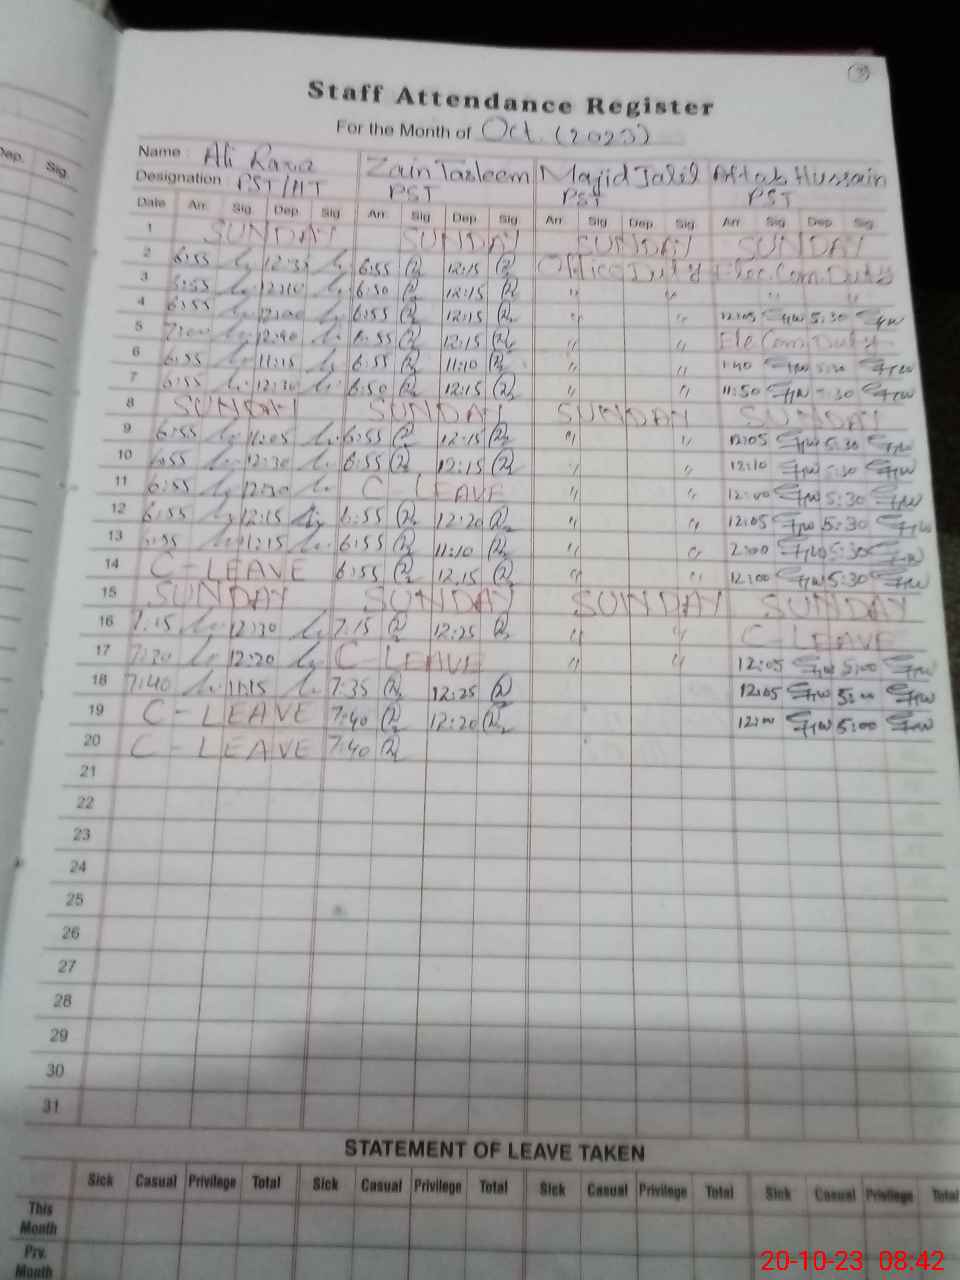 Dep. Sig.
3
Staff Attendance Register
For the Month of Oct. (2023)
Name : Ali Raza Zain Tasleem Majid Jalil Aftab Hussain
Designation : PST/HT PST PST PST
Date Arr. Sig. Dep. Sig. Arr. Sig. Dep. Sig. Arr. Sig. Dep. Sig. Arr. Sig. Dep. Sig.
1 SUNDAY SUNDAY SUNDAY SUNDAY
2 6:55 12:35 6:55 12:15 Office Duty Elec. Com. Duty
3 6:55 12:10 6:50 12:15 " " " "
4 6:55 12:00 6:55 12:15 " " 12:05 5:30
5 7:00 12:40 6:55 12:15 " " Ele Com. Duty
6 6:55 11:15 6:55 11:10 " " 1:40 5:30
7 6:55 12:30 6:50 12:15 " " 11:50 5:30
8 SUNDAY SUNDAY SUNDAY SUNDAY
9 6:55 11:05 6:55 12:15 " " 12:05 5:30
10 6:55 12:30 6:55 12:15 " " 12:10 5:30
11 6:55 12:30 C LEAVE " " 12:00 5:30
12 6:55 12:15 6:55 12:20 " " 12:05 5:30
13 11:15 6:55 11:10 " " 2:00 5:30
14 C-LEAVE 6:55 12.15 " " 12:00 5:30
15 SUNDAY SUNDAY SUNDAY SUNDAY
16 7.15 12:30 7.15 12:25 " " C-LEAVE
17 7:30 12:20 C-LEAVE " " 12:05 5:00
18 7:40 11:15 7:35 12:25 12:05 5:00
19 C-LEAVE 7:40 12:20 12:00 5:00
20 C-LEAVE 7:40
21
22
23
24
25
26
27
28
29
30
31
STATEMENT OF LEAVE TAKEN
Sick Casual Privilege Total Sick Casual Privilege Total Sick Casual Privilege Total Sick Casual Privilege Total
This Month
Prv. Month
20-10-23 08:42